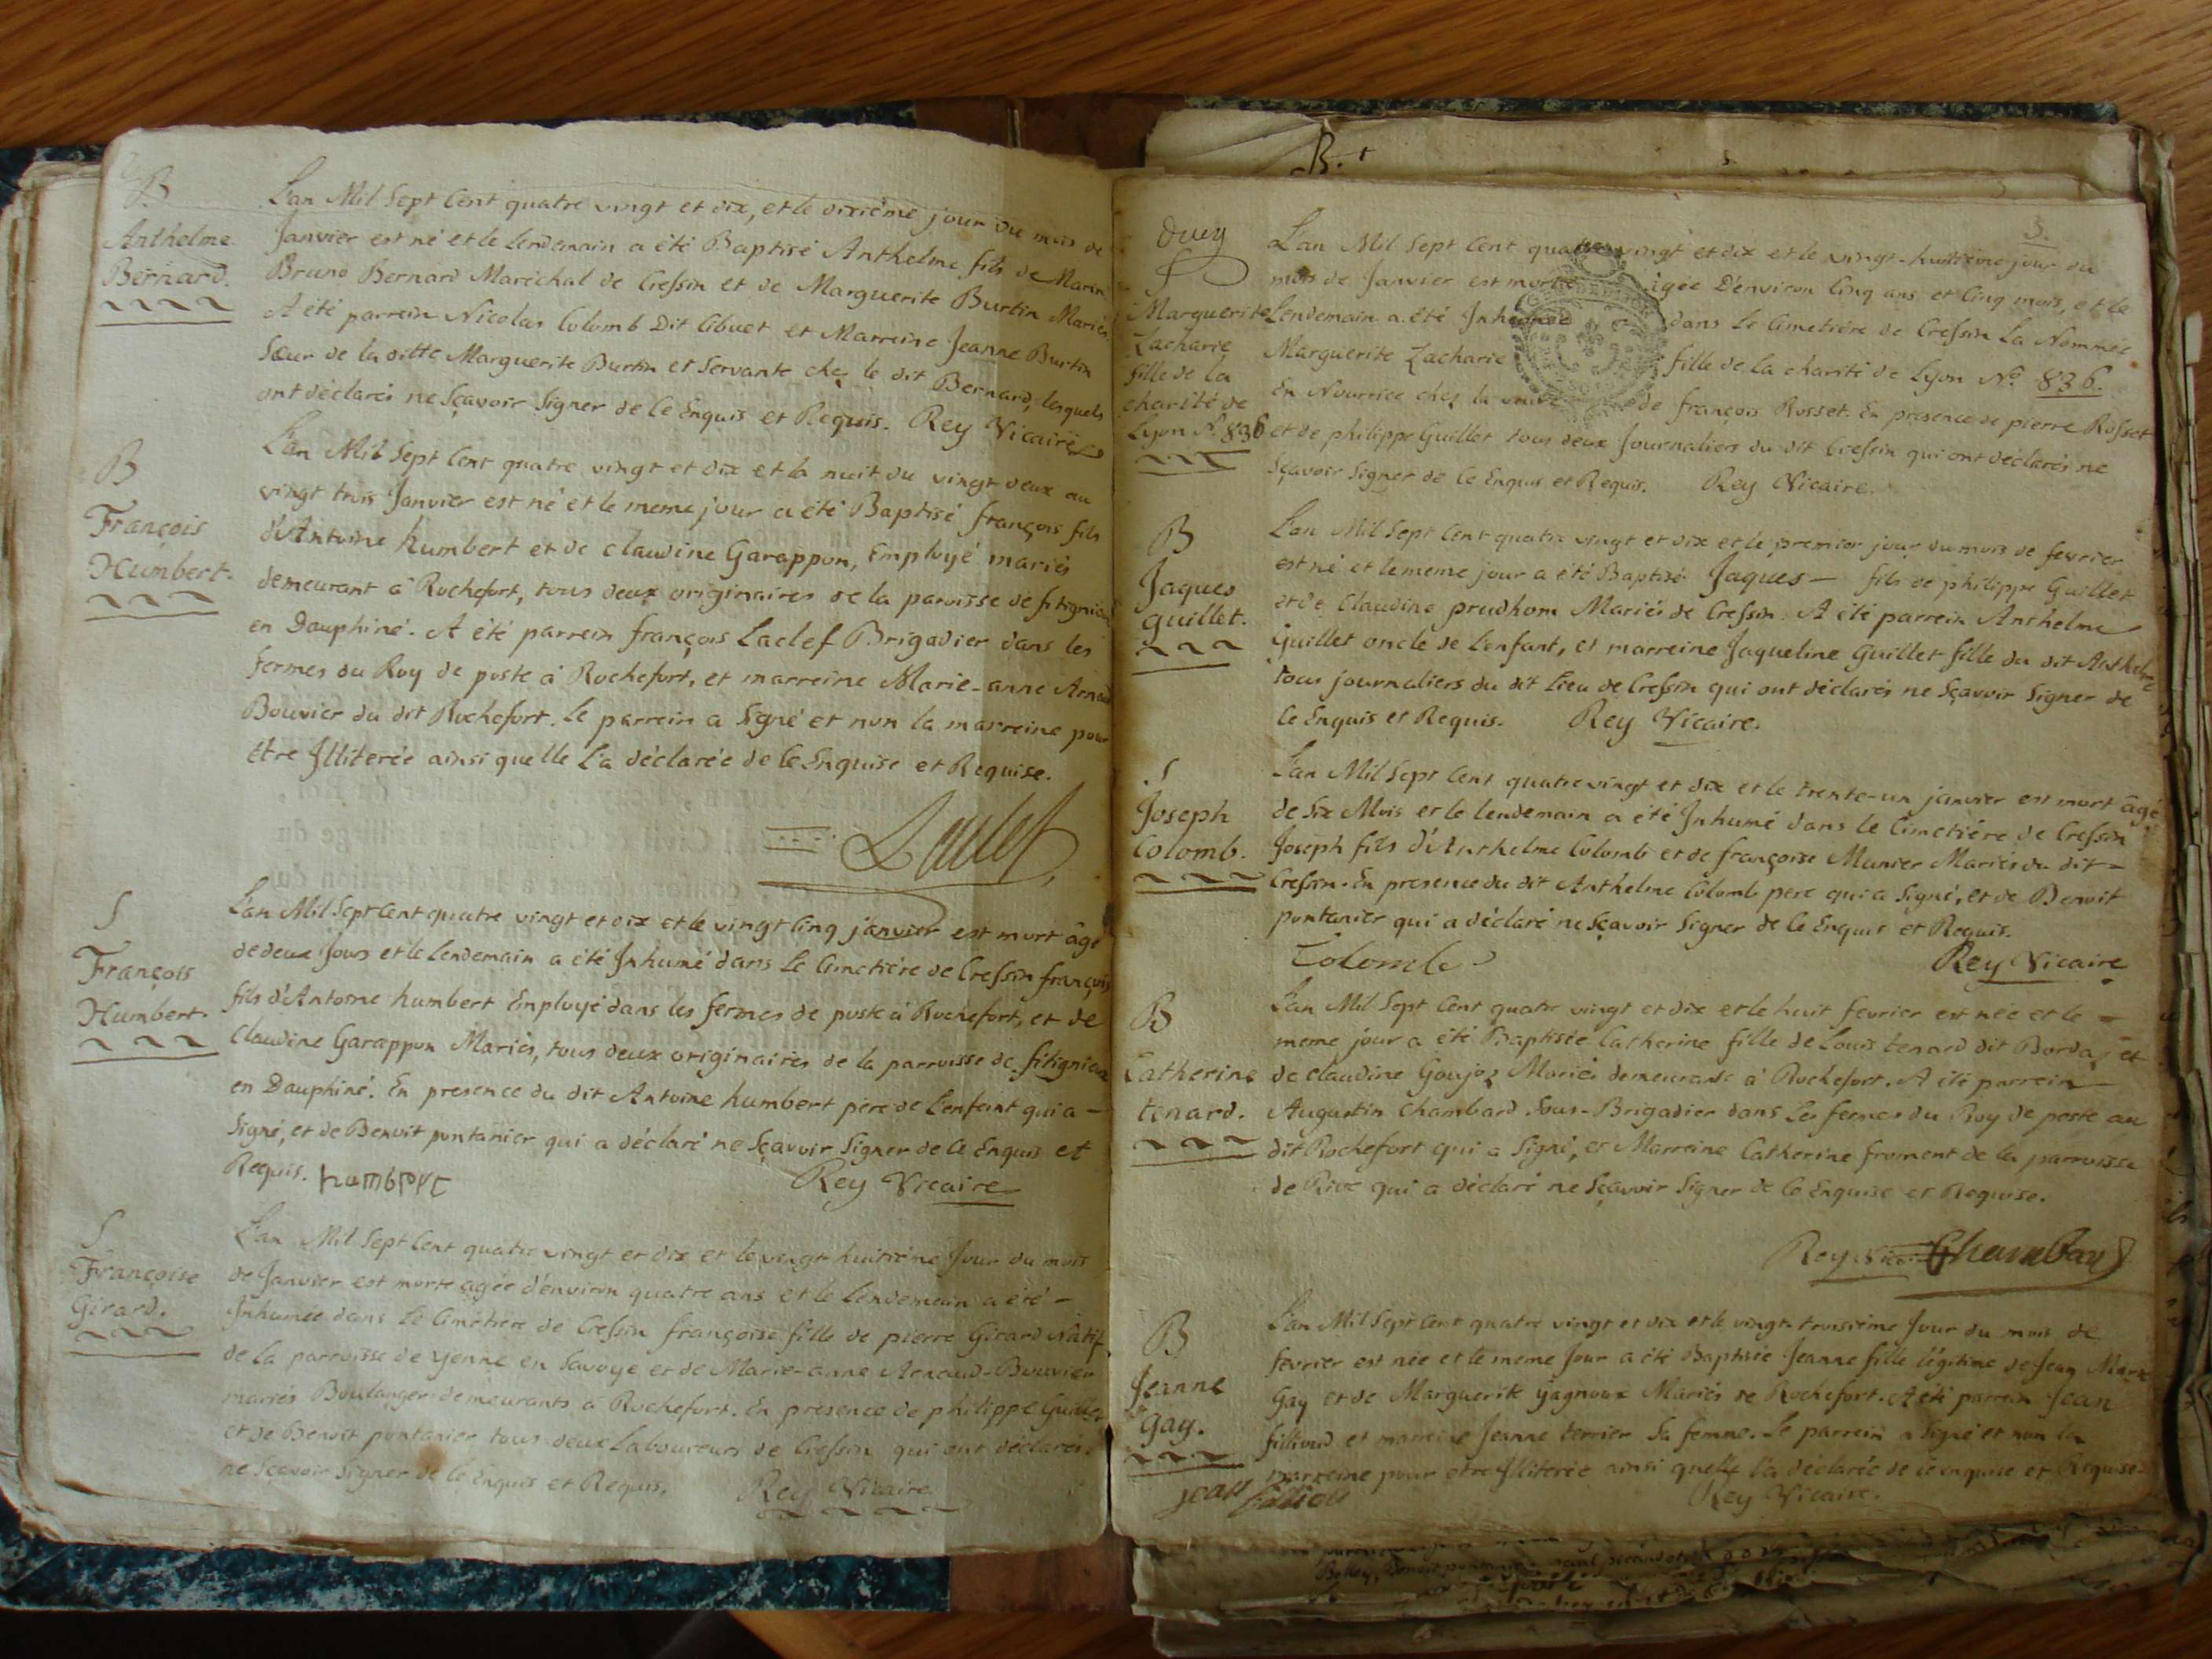 B
Anthelme
Bernard.
L'an Mil Sept Cent quatre vingt et dix, et le dixième jour du mois de
Janvier est né et le lendemain a été Baptisé Anthelme fils de Marin
Bruno Bernard Maréchal de Cressin et de Marguerite Burtin Mariés.
A été parrein Nicolas Colomb Dit Cibuet et Marreine Jeanne Burtin
Sœur de la ditte Marguerite Burtin et Servante chez le dit Bernard, lesquels
ont déclarés ne Sçavoir Signer de ce Enquis et Requis. Rey Vicaire
B
François
Humbert.
L'an Mil Sept Cent quatre vingt et dix et la nuit du vingt deux au
vingt trois Janvier est né et le meme jour a été Baptisé françois fils
d'Antoine humbert et de claudine Garappon, Employé mariés
demeurant à Rochefort, tous deux originaires de la paroisse de
en Dauphiné. A été parrein françois Laclef Brigadier dans les
fermes du Roy de poste à Rochefort, et marreine Marie-anne Arnaud
Bouvier du dit Rochefort. Le parrein a Signé et non la marreine pour
être Illiterée ainsi quelle l'a déclarée de ce Enquise et Requise.
Laclef
S
François
Humbert.
L'an Mil Sept Cent quatre vingt et dix et le vingt Cinq janvier est mort âgé
de deux Jours et le lendemain a été Inhumé dans Le Cimetière de Cressin françois
fils d'Antoine humbert Employé dans les fermes de poste à Rochefort, et de
Claudine Garappon Mariés, tous deux originaires de la parroisse de
en Dauphiné. En presence du dit Antoine humbert père de L'enfant qui a -
Signé, et de Benoit pontanier qui a déclaré ne Sçavoir Signer de Ce Enquis et
Requis. humbert Rey Vicaire
S
Françoise
Girard.
L'an Mil Sept Cent quatre vingt et dix et le vingt huitième Jour du mois
de Janvier est morte agée d'environ quatre ans et le Lendemain a été -
Inhumée dans Le Cimetière de Cressin françoise fille de pierre Girard Natif
de la parroisse de yenne en Savoye et de Marie-anne Arnaud-Bouvier
mariés Boulanger demeurants à Rochefort. En presence de philippe Guillet
et de Benoit pontanier tous deux Laboureurs de Cressin qui ont déclarés
ne Sçavoir Signer de ce Enquis et Requis. Rey Vicaire
B.
3.
S
Marguerite
Zacharie
fille de la
charité de
Lyon N.° 836
L'an Mil Sept Cent quatre vingt et dix et le vingt-huitième jour du
mois de Janvier est morte agée D'environ Cinq ans et Cinq mois, et le
Lendemain a été Inhumée dans Le Cimetière de Cressin La Nommée
Marguerite Zacharie fille de la charité de Lyon N.° 836.
En Nourrice chez la veuve de françois Rosset. En presence de pierre Rosset
et de philippe Guillet tous deux Journaliers du dit Cressin qui ont déclarés ne
Sçavoir Signer de Ce Enquis et Requis. Rey Vicaire.
B
Jaques
guillet.
L'an Mil Sept Cent quatre vingt et dix et le premier jour du mois de fevrier
est né et le meme jour a été Baptisé Jaques - fils de philippe Guillet
et de Claudine prudhom Mariés de Cressin. A été parrein Anthelme
Guillet oncle de L'enfant, et marreine Jaqueline Guillet fille du dit Anthelme
tous journaliers du dit Lieu de Cressin qui ont déclarés ne Sçavoir Signer de
Ce Enquis et Requis. Rey Vicaire.
S
Joseph
Colomb.
L'an Mil Sept Cent quatre vingt et dix et le trente-un janvier est mort âgé
de Six Mois et le lendemain a été Inhumé dans le Cimetière de Cressin
Joseph fils d'Anthelme Colomb et de françoise Munier Mariés du dit -
Cressin. En presence du dit Anthelme Colomb pere qui a Signé, et de Benoit
pontanier qui a déclaré ne Sçavoir Signer de Ce Enquis et Requis.
Colomb Rey Vicaire
B
Catherine
tenard.
L'an Mil Sept Cent quatre vingt et dix et le huit fevrier est née et le -
meme jour a été Baptisée Catherine fille de Louis tenard dit Bordaz et
de claudine Goujoz Mariés demeurant à Rochefort. A été parrein
Augustin chambard Sous-Brigadier dans Les fermes du Roy de poste au
dit Rochefort qui a Signé, et Marreine Catherine froment de la parroisse
de Rive qui a déclaré ne Sçavoir Signer de Ce Enquise et Requise.
Rey Chambard
B
Jeanne
gay.
L'an Mil Sept Cent quatre vingt et dix et le vingt-troisième Jour du mois de
fevrier est née et le meme Jour a été Baptisée Jeanne fille légitime de Jean Marie
Gay et de Marguerite gagnoux Mariés de Rochefort. A été parrein Jean
filliond et marreine Jeanne terrier Sa femme. Le parrein a Signé et non la
marreine pour etre Illiterée ainsi quelle l'a déclarée de ce enquise et Requise.
jean Rey Vicaire.